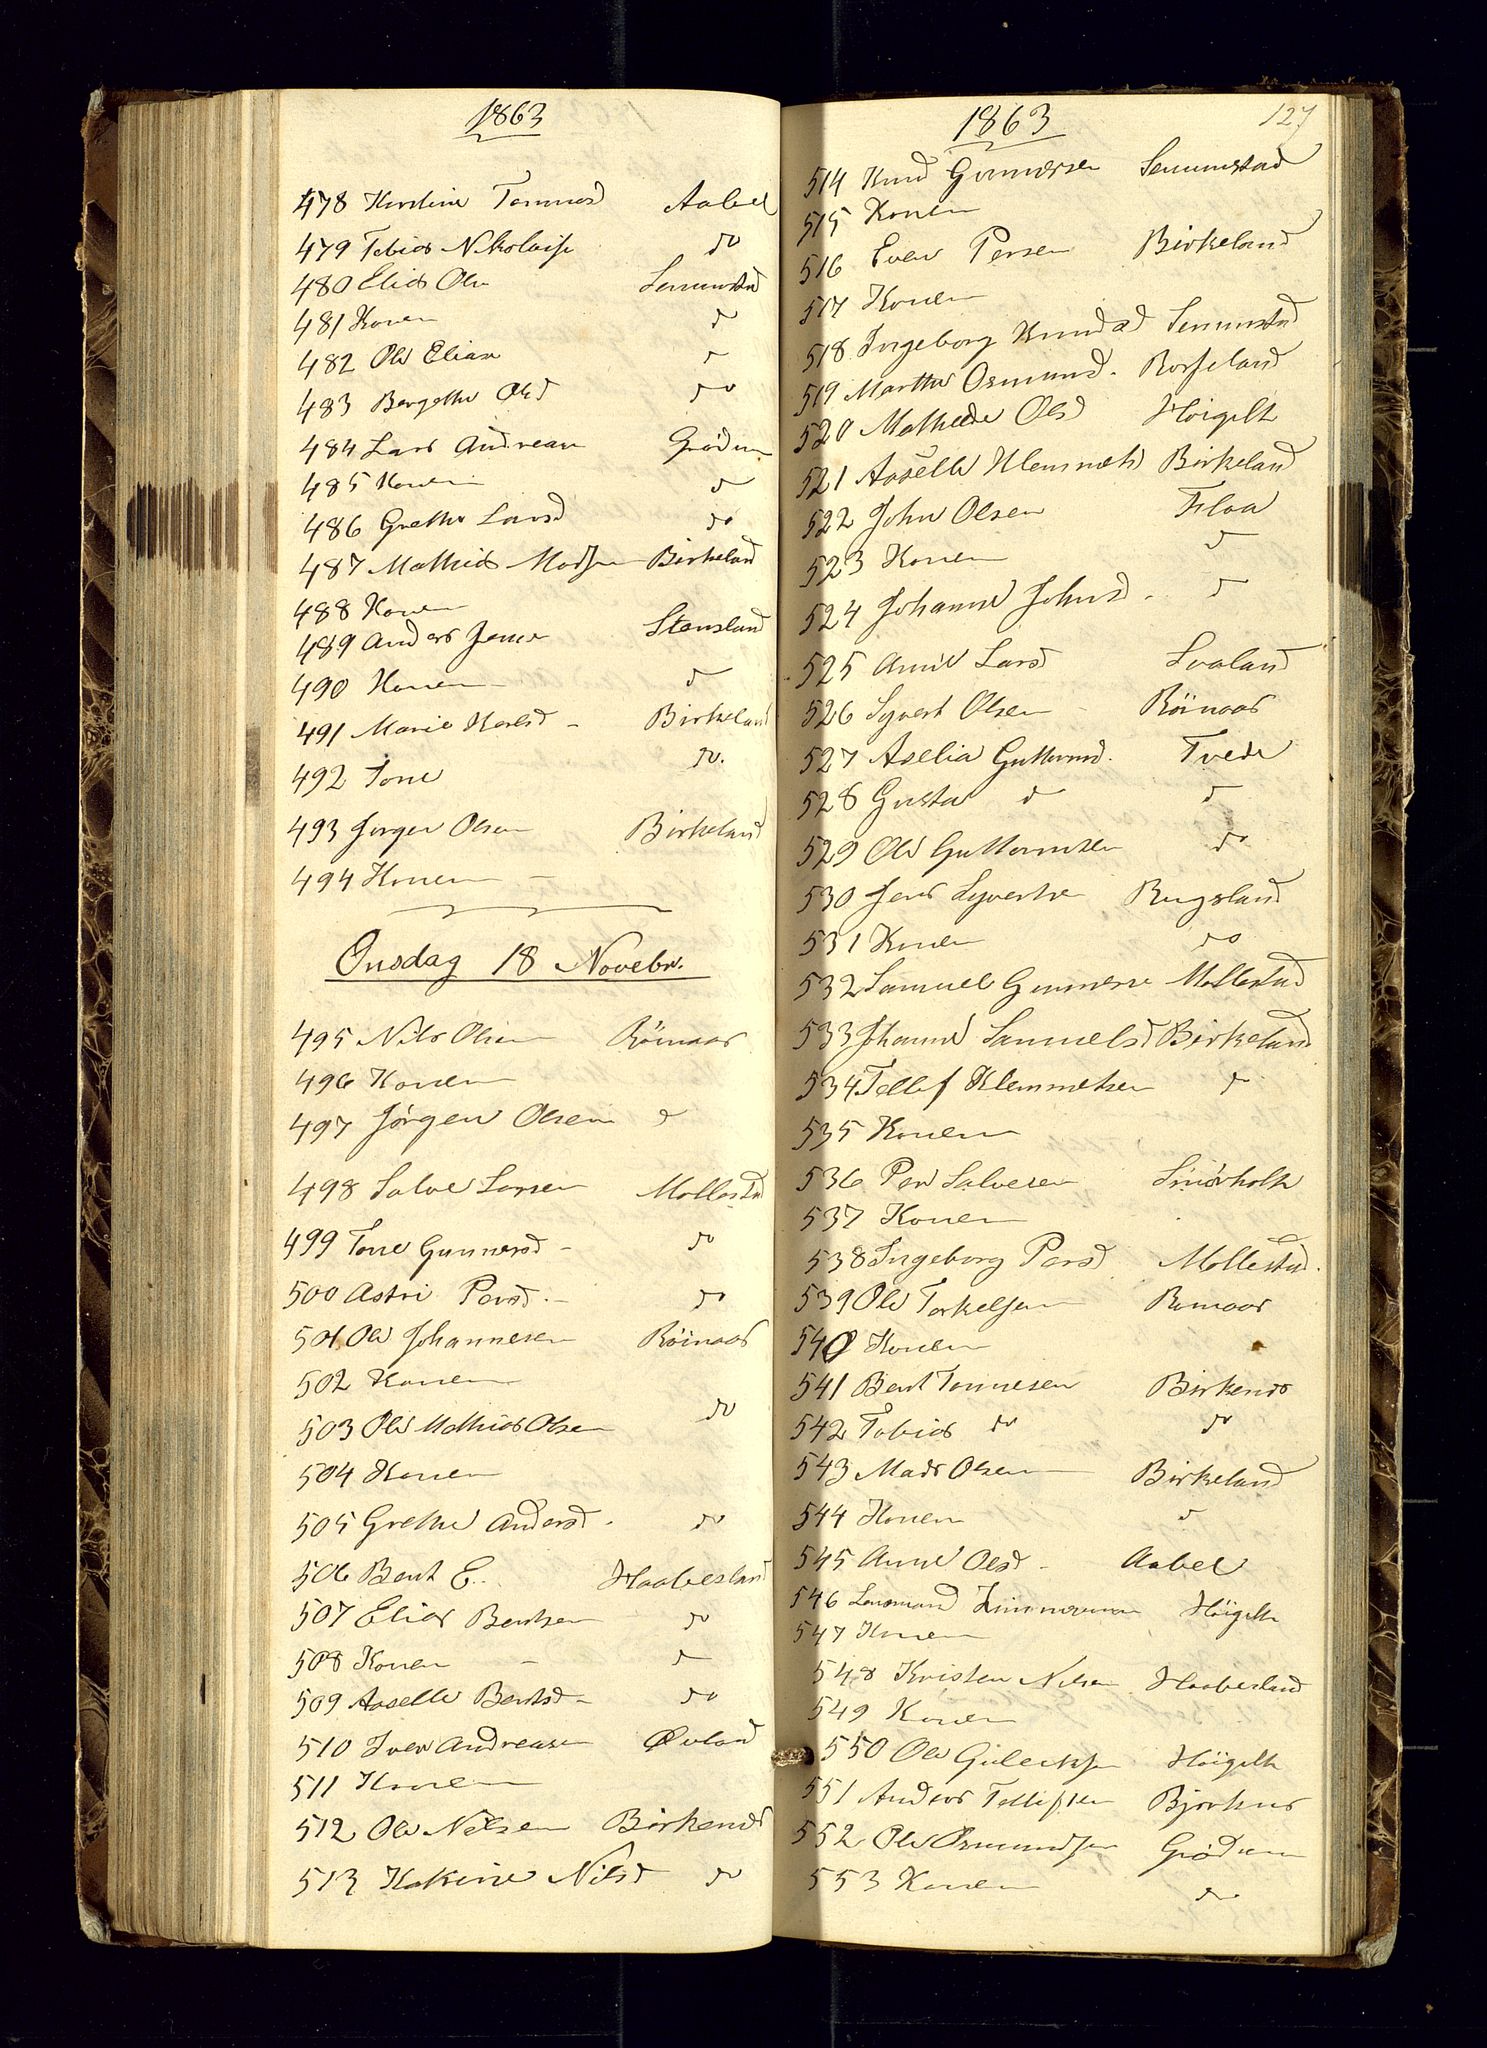 1863
478 Kirstine Tommesd Aabel
479 Tobias Nikolais do
480 Elias Ols Senumstad
481 Konen d
482 Ole Elias
483 Bergethe Olsd do
484 Lars Andreas Grödum
485 Konen d
486 Grethe Larsd do
487 Mathias Madsen Birkeland
488 Konen
489 Anders Jense Stensland
490 Konen d
491 Marie Karlsd - Birkeland
492 Tone do.
493 Jørgen Olsen Birkeland
494 Konen -
Onsdag 18 Novebr.
495 Nils Olsen Röinaas
496 Konen
497 Jörgen Olsen d
498 Salve Larsen Mollestad
499 Tone Gunnersd - do
500 Astri Persd. - do
501 Ole Johannesen Röinaas
502 Konen
503 Ole Mathias Olsen do
504 Konen
505 Grethe Andersd. do
506 Bent E.. Haabesland
507 Elias Bentsen do
508 Konen - d
509 Aaselle Bentsd - do
510 Iver Andreasen Øvland
511 Konen
512 Ole Nilsen Birkenes
513 Kakine Nilsd do
1863 127
514 Knud Gunnersen Senumstad
515 Konen
516 Even Persen Birkeland
517 Konen
518 Ingeborg Knudsd Senumstad
519 Marthe Osmund. Rosseland
520 Mathilde Olsd Höigilt
521 Aaselle Klemmetsd Birkeland
522 John Olsen Flaa
523 Konen d
524 Johanne Johnsd - d
525 Anne Larsd Svaland
526 Syvert Olsen - Röinaas
527 Aselia Guttormd. Tvede
528 Gusta d d
529 Ole Guttormsen do
530 Jens Syverts Rugsland
531 Konen do
532 Samuel Gunners Mollestad
533 Johanne Samuelsd Birkeland
534 Tellef Klemmetsen d
535 Konen
536 Per Salvesen Smörholt
537 Konen
538 Ingeborg Persd Mollestad.
539 Ole Torkelsen Romaas
540 Konen
541 Bent Tonnesen Birkenes
542 Tobias do do
543 Mads Olsen Birkeland
544 Konen d
545 Anne Olsd - Aabel
546 Lensmand Zimmerman Höigilt
547 Konen
548 Kristen Nilsen Haabesland
549 Konen
550 Ole Guleiks Höigilt
551 Anders Tellefsen Bjorkus
552 Ole Osmundsen Grödum
553 Konen do